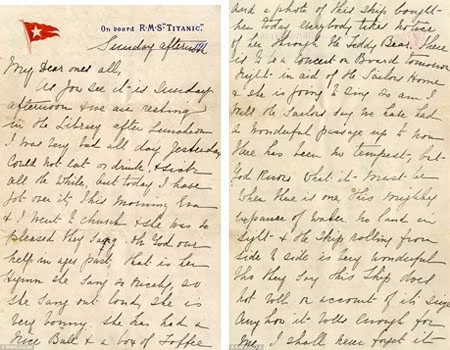 On board R.M.S. "Titanic."
Sunday afternoon
My Dear ones all,
As you see it is Sunday
afternoon & we are resting
in the Library after Luncheon
I was very bad all day Yesterday
Could not eat or drink, & sick
all the While, but today I have
got over it, This morning Eva
& I went to church & she was so
pleased they Sang Oh God our
help in ages past, that is her
Hymn she Sang so nicely, so
she Sang out loud, she is
very bonny she has had a
nice Ball & a box of Toffee
and a photo of this Ship bought
her today everybody takes notice
of her through the Teddy Bear. There
is to be a Concert on Board tomorrow
night in aid of the Sailors Home
& she is going to sing so am I
Well the Sailors say we have had
a Wonderful passage up to now
there has been no tempest, but
God Knows What it must be
When there is one, This mighty
expanse of water no land in
sight & the ship rolling from
side to side is very wonderful
tho they Say this Ship does
not roll on account of its size
Any how it rolls enough for
me, I shall never forget it